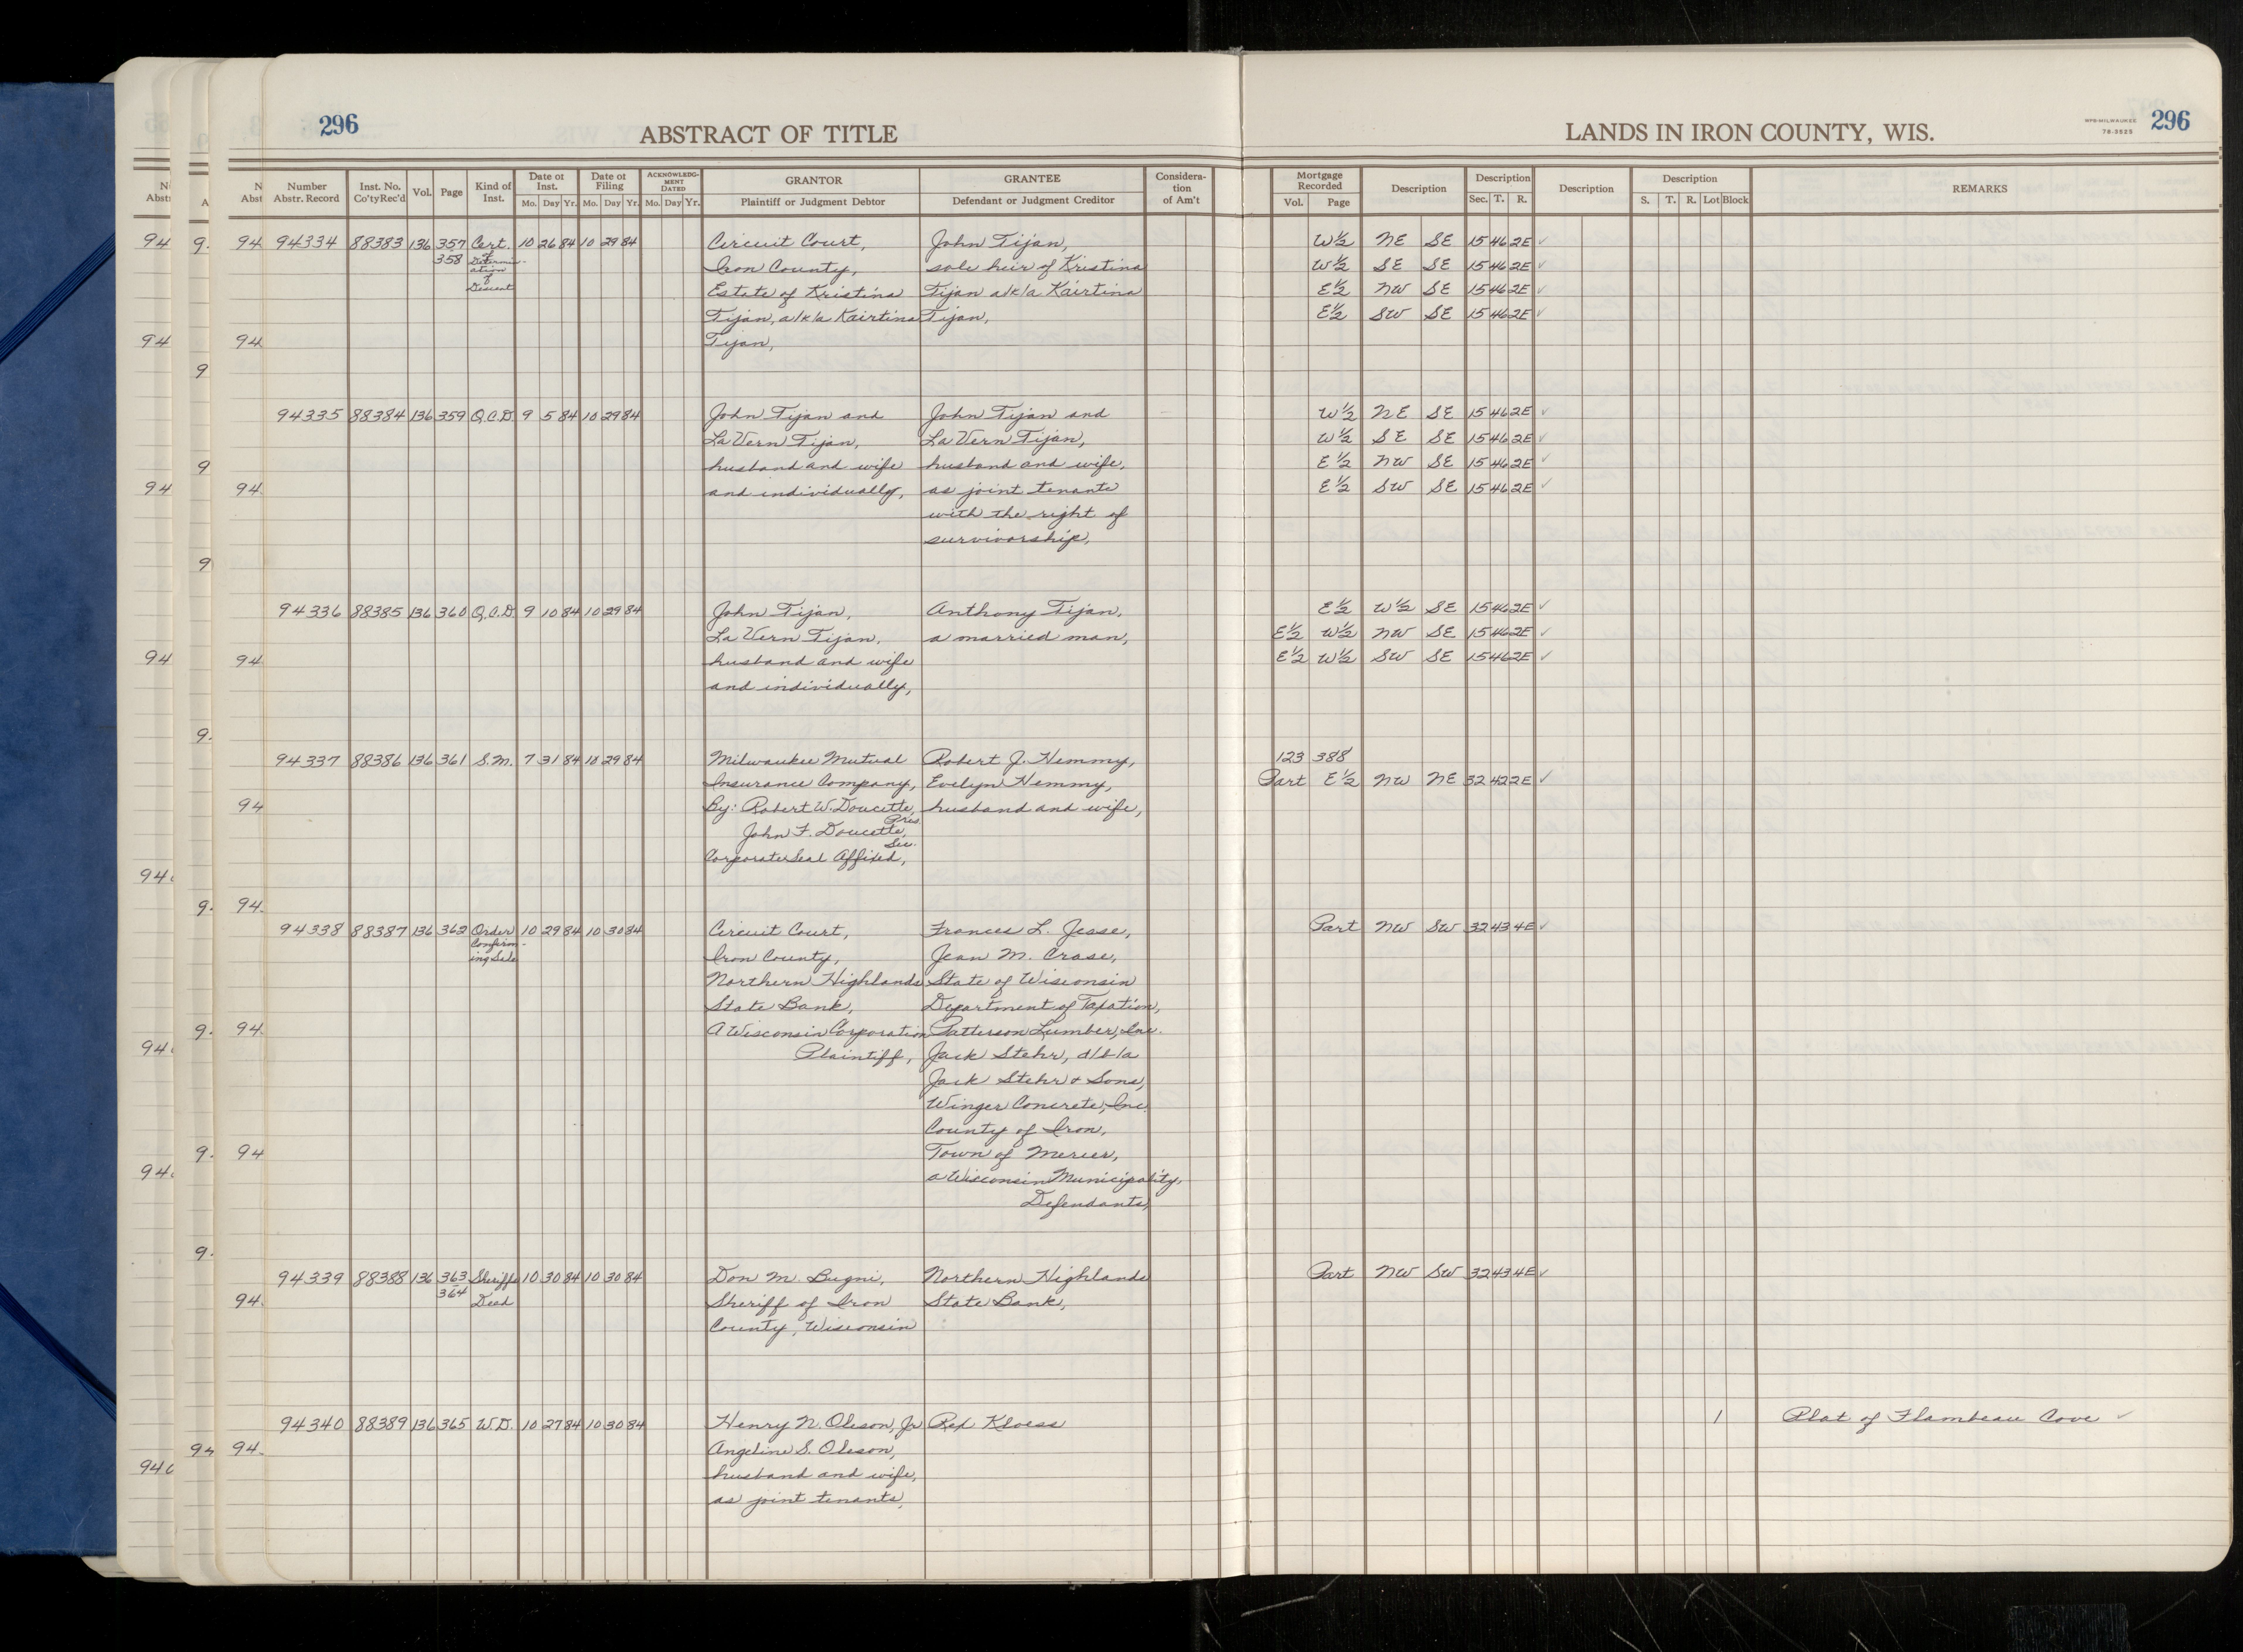 296 ABSTRACT OF TITLE LANDS IN IRON COUNTY, WIS. WPB-MILWAUKEE 78-3525 296
Number Abstr. Record Inst. No. Co'tyRec'd Vol. Page Kind of Inst. Date of Inst. Mo. Day Yr. Date of Filing Mo. Day Yr. ACKNOWLEDGMENT DATED Mo. Day Yr. GRANTOR Plaintiff or Judgment Debtor GRANTEE Defendant or Judgment Creditor Consideration of Am't Mortgage Recorded Vol. Page Description Description Sec. T. R. Description Description S. T. R. Lot Block REMARKS
94334 88383 136 357 Cert. 10 26 84 10 29 84 Circuit Court, John Tijan, W½ NE SE 15 46 2E ✓
358 of Determination of Descent Iron County, sole heir of Kristina W½ SE SE 15 46 2E ✓
Estate of Kristina Tijan a/k/a Kairtina E½ NW SE 15 46 2E ✓
Tijan, a/k/a Kairtina Tijan, E½ SW SE 15 46 2E ✓
Tijan,
94335 88384 136 359 Q.C.D. 9 5 84 10 29 84 John Tijan and John Tijan and W½ NE SE 15 46 2E ✓
La Vern Tijan, La Vern Tijan, W½ SE SE 15 46 2E ✓
husband and wife husband and wife, E½ NW SE 15 46 2E ✓
and individually, as joint tenants E½ SW SE 15 46 2E ✓
with the right of
survivorship,
94336 88385 136 360 Q.C.D. 9 10 84 10 29 84 John Tijan, Anthony Tijan, E½ W½ SE 15 46 2E ✓
La Vern Tijan, a married man, E½ W½ NW SE 15 46 2E ✓
husband and wife E½ W½ SW SE 15 46 2E ✓
and individually,
94337 88386 136 361 S.M. 7 31 84 10 29 84 Milwaukee Mutual Robert J. Hemmy, 123 388
Insurance Company, Evelyn Hemmy, Part E½ NW NE 32 42 2E ✓
By: Robert W. Doucette, Pres. husband and wife,
John F. Doucette, Sec.
Corporate Seal Affixed,
94338 88387 136 362 Order Confirming Sale 10 29 84 10 30 84 Circuit Court, Frances L. Jesse, Part NW SW 32 43 4E ✓
Iron County, Jean M. Crase,
Northern Highlands State of Wisconsin
State Bank, Department of Taxation,
A Wisconsin Corporation Patterson Lumber, Inc.
Plaintiff, Jack Stehr, d/b/a
Jack Stehr & Sons,
Winger Concrete, Inc.
County of Iron,
Town of Mercer,
a Wisconsin Municipality,
Defendants,
94339 88388 136 363 Sheriffs 10 30 84 10 30 84 Don M. Bugni, Northern Highlands Part NW SW 32 43 4E ✓
364 Deed Sheriff of Iron State Bank,
County, Wisconsin
94340 88389 136 365 W.D. 10 27 84 10 30 84 Henry N. Oleson, Jr Rex Kloess 1 Plat of Flambeau Cove ✓
Angeline S. Oleson,
husband and wife,
as joint tenants,